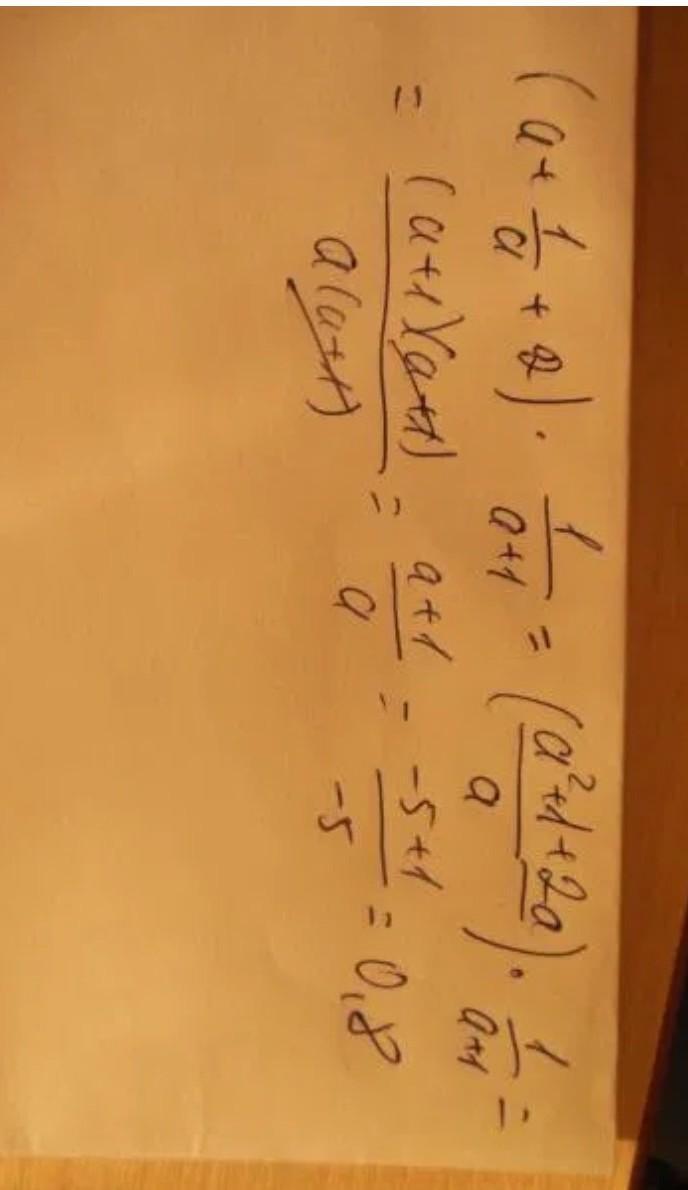 (a + 1/a + 2) · 1/(a+1) = ((a²+1+2a)/a) · 1/(a+1) =
= ((a+1)(a+1))/(a(a+1)) = (a+1)/a = (-5+1)/(-5) = 0,8